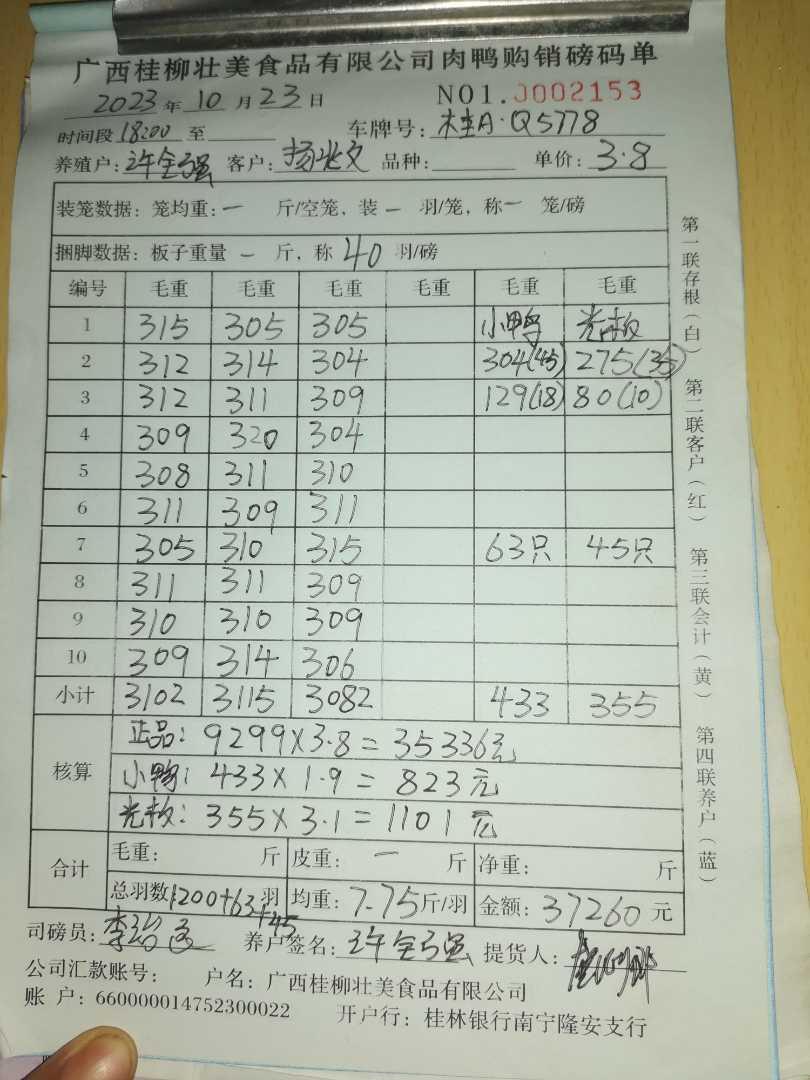 广西桂柳壮美食品有限公司肉鸭购销磅码单
2023年10月23日 NO1.0002153
时间段18:00至 车牌号：桂A·Q5778
养殖户：许全强 客户：扬兆文 品种： 单价：3.8
装笼数据：笼均重：一 斤/空笼，装一 羽/笼，称一 笼/磅
捆脚数据：板子重量 一 斤，称 40 羽/磅
编号 毛重 毛重 毛重 毛重 毛重 毛重
1 315 305 305 小鸭 光板
2 312 314 304 304(45) 275(35)
3 312 311 309 129(18) 80(10)
4 309 320 304
5 308 311 310
6 311 309 311
7 305 310 315 63只 45只
8 311 311 309
9 310 310 309
10 309 314 306
小计 3102 3115 3082 433 355
核算 正品：9299×3.8=35336元
小鸭：433×1.9=823元
光板：355×3.1=1101元
合计 毛重： 斤 皮重：一 斤 净重： 斤
总羽数1200+63+45羽 均重：7.75斤/羽 金额：37260元
司磅员： 养户签名：许全强 提货人：
公司汇款账号： 户名：广西桂柳壮美食品有限公司
账 户：660000014752300022 开户行：桂林银行南宁隆安支行
第一联存根（白） 第二联客户（红） 第三联会计（黄） 第四联养户（蓝）